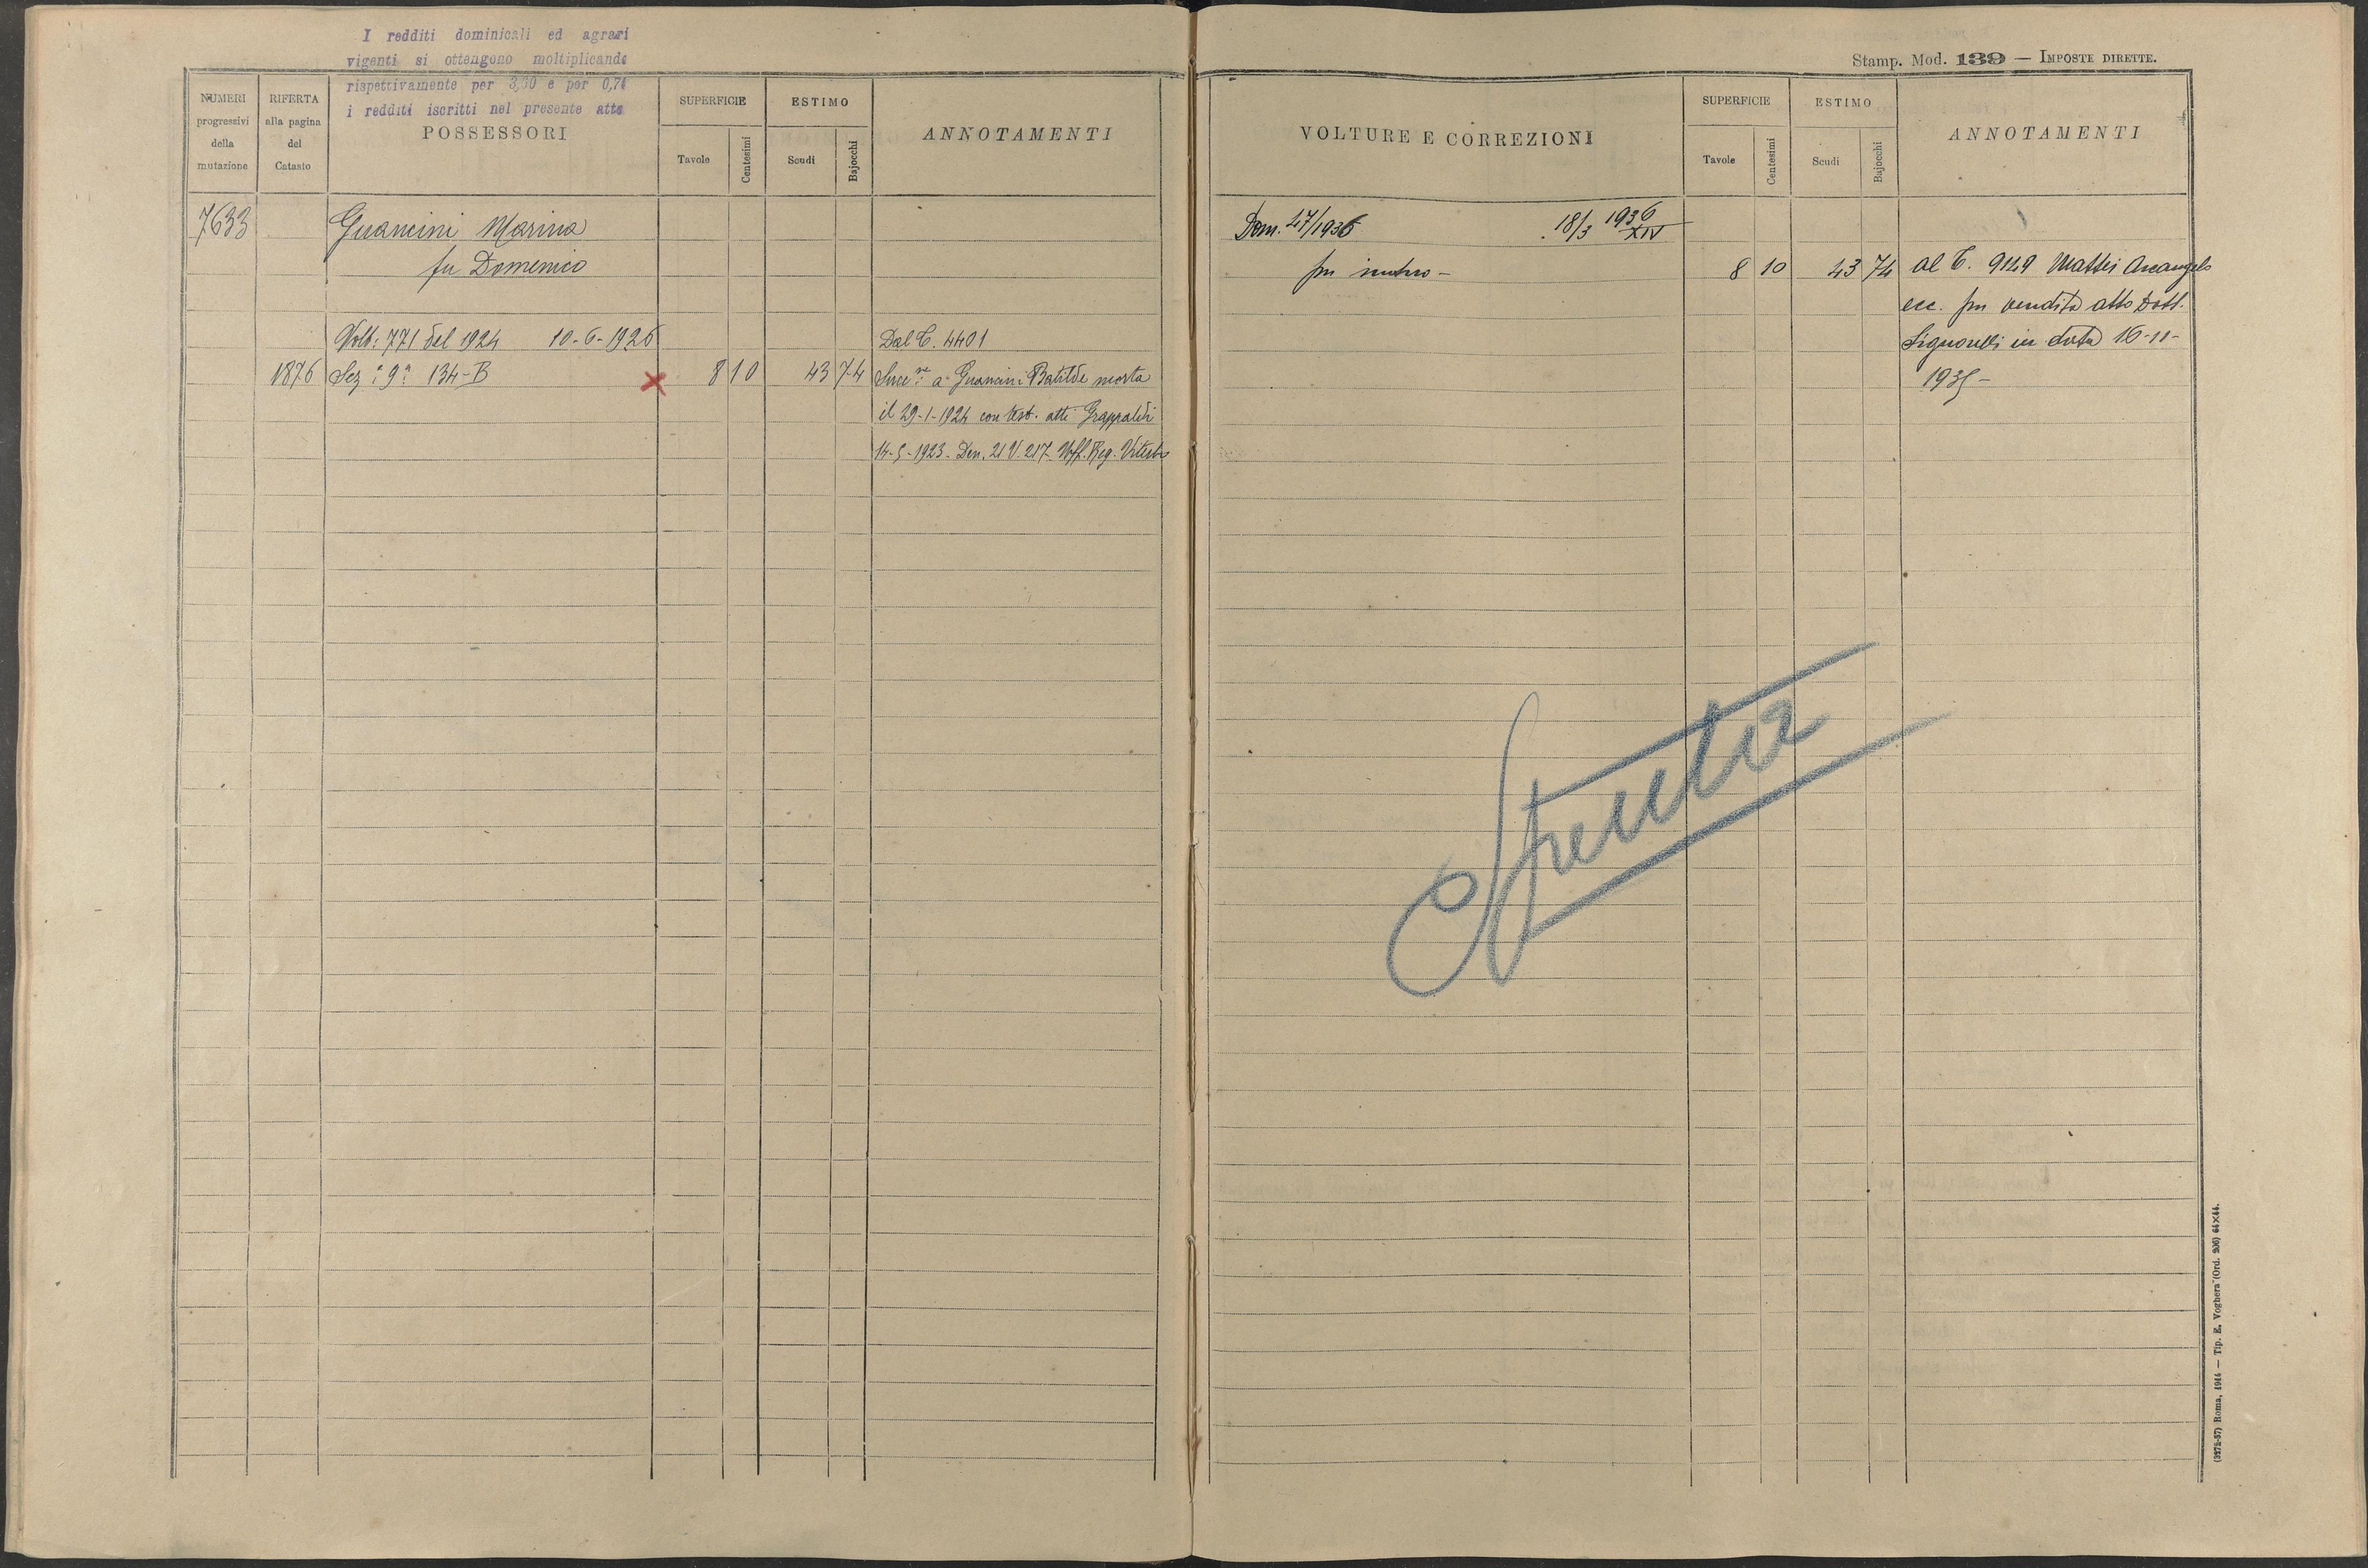 I redditi dominicali ed agrari
vigenti si ottengono moltiplicando
rispettivamente per 3,30 e per 0,74
i redditi iscritti nel presente atto
NUMERI progressivi della mutazione
RIFERTA alla pagina del Catasto
POSSESSORI
SUPERFICIE
Tavole
Centesimi
ESTIMO
Scudi
Bajocchi
ANNOTAMENTI
7633 Guancini Marina
fu Domenico
Volt: 771 del 1924 10-6-1926 Dal C. 4401
1876 Sez: 9ª 134-B 8 10 43 74 Succ.ne a Guancini Batilde morta
il 29-1-1924 con test. atti Grappaldi
14-5-1923. Den. 21 V. 217 Uff. Reg. Viterbo
Stamp. Mod. 139 — IMPOSTE DIRETTE.
VOLTURE E CORREZIONI
SUPERFICIE
Tavole
Centesimi
ESTIMO
Scudi
Bajocchi
ANNOTAMENTI
Dom. 47/1936 18/3 1936 XIV
per intero - 8 10 43 74 al C. 9149 Mattei Arcangelo
ecc. per vendita atto Dott.
Signorelli in data 16-11-
1935-
Spenta
(3272-57) Roma, 1914 — Tip. E. Voghera (Ord. 206) 64×44.